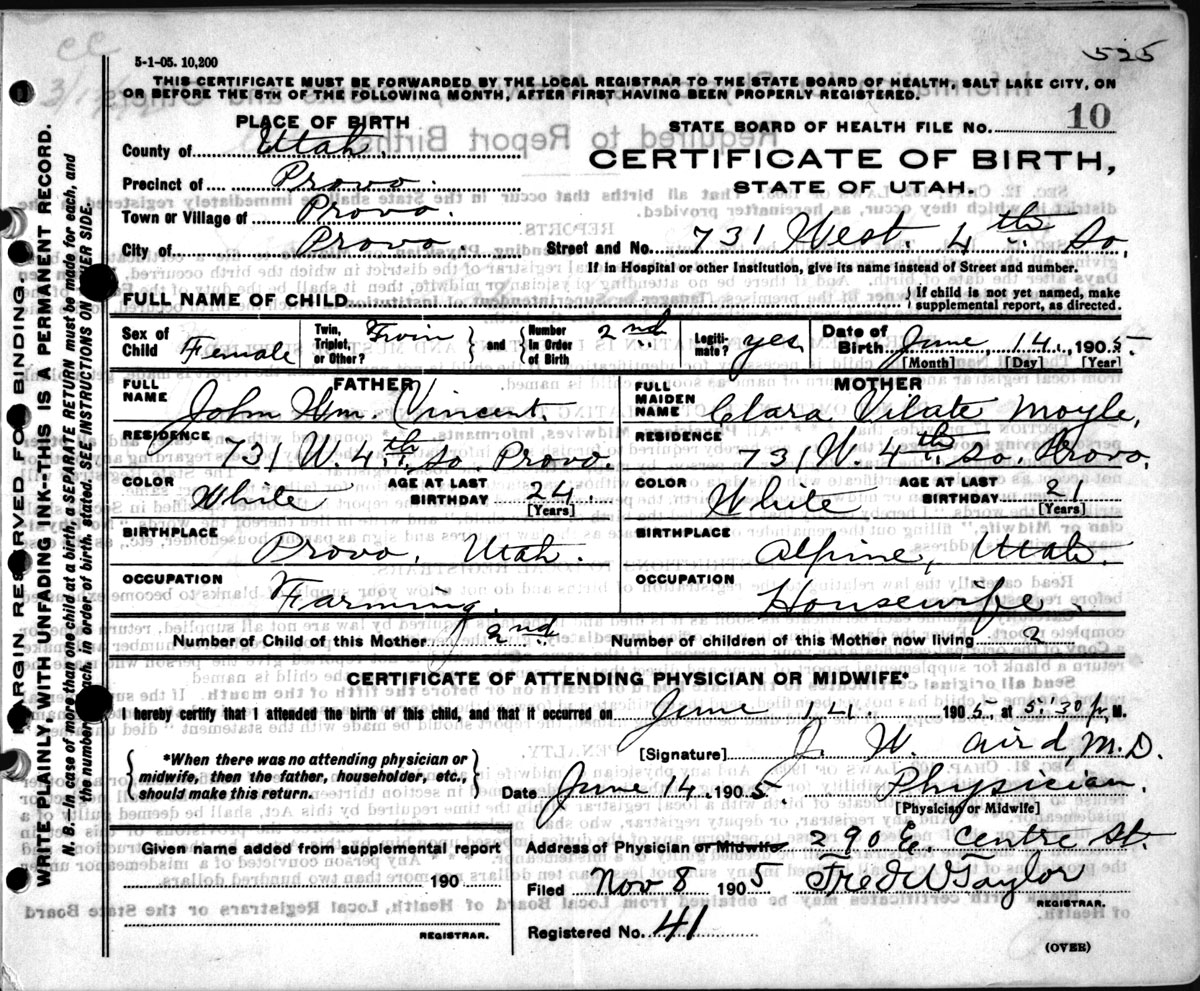 525
5-1-05. 10,200
THIS CERTIFICATE MUST BE FORWARDED BY THE LOCAL REGISTRAR TO THE STATE BOARD OF HEALTH, SALT LAKE CITY, ON
OR BEFORE THE 5TH OF THE FOLLOWING MONTH, AFTER FIRST HAVING BEEN PROPERLY REGISTERED.
PLACE OF BIRTH
STATE BOARD OF HEALTH FILE NO. 10
County of Utah.
CERTIFICATE OF BIRTH,
Precinct of Provo.
STATE OF UTAH.
Town or Village of Provo.
City of Provo. Street and No. 731 West. 4th. So.
If in Hospital or other Institution, give its name instead of Street and number.
FULL NAME OF CHILD { If child is not yet named, make supplemental report, as directed.
Sex of Child Female Twin, Triplet, or Other? Twin } and { Number In Order of Birth 2nd Legiti-mate? yes Date of Birth June 14. 1905.
[Month] [Day] [Year]
FATHER
MOTHER
FULL NAME John Wm. Vincent.
FULL MAIDEN NAME Clara Vilate Moyle,
RESIDENCE 731 W. 4th. So. Provo.
RESIDENCE 731 W. 4th. So. Provo.
COLOR White AGE AT LAST BIRTHDAY 24. [Years]
COLOR White AGE AT LAST BIRTHDAY 21 [Years]
BIRTHPLACE Provo, Utah.
BIRTHPLACE Alpine, Utah.
OCCUPATION Farming.
OCCUPATION Housewife.
Number of Child of this Mother 2nd.
Number of children of this Mother now living 2
CERTIFICATE OF ATTENDING PHYSICIAN OR MIDWIFE*
I hereby certify that I attended the birth of this child, and that it occurred on June 14. 1905 at 5:30 p. M.
*When there was no attending physician or midwife, then the father, householder, etc., should make this return.
[Signature] J. W. Aird, M.D.
Date June 14. 1905. Physician.
[Physician or Midwife]
Address of Physician or Midwife 290 E. Centre St.
Given name added from supplemental report
190
REGISTRAR.
Filed Nov 8 1905 Fred W Taylor
REGISTRAR.
Registered No. 41
(OVER)
MARGIN RESERVED FOR BINDING.
WRITE PLAINLY WITH UNFADING INK--THIS IS A PERMANENT RECORD.
N. B.--In case of more than one child at a birth, a SEPARATE RETURN must be made for each, and
the number of each, in order of birth, stated. SEE INSTRUCTIONS ON OTHER SIDE.